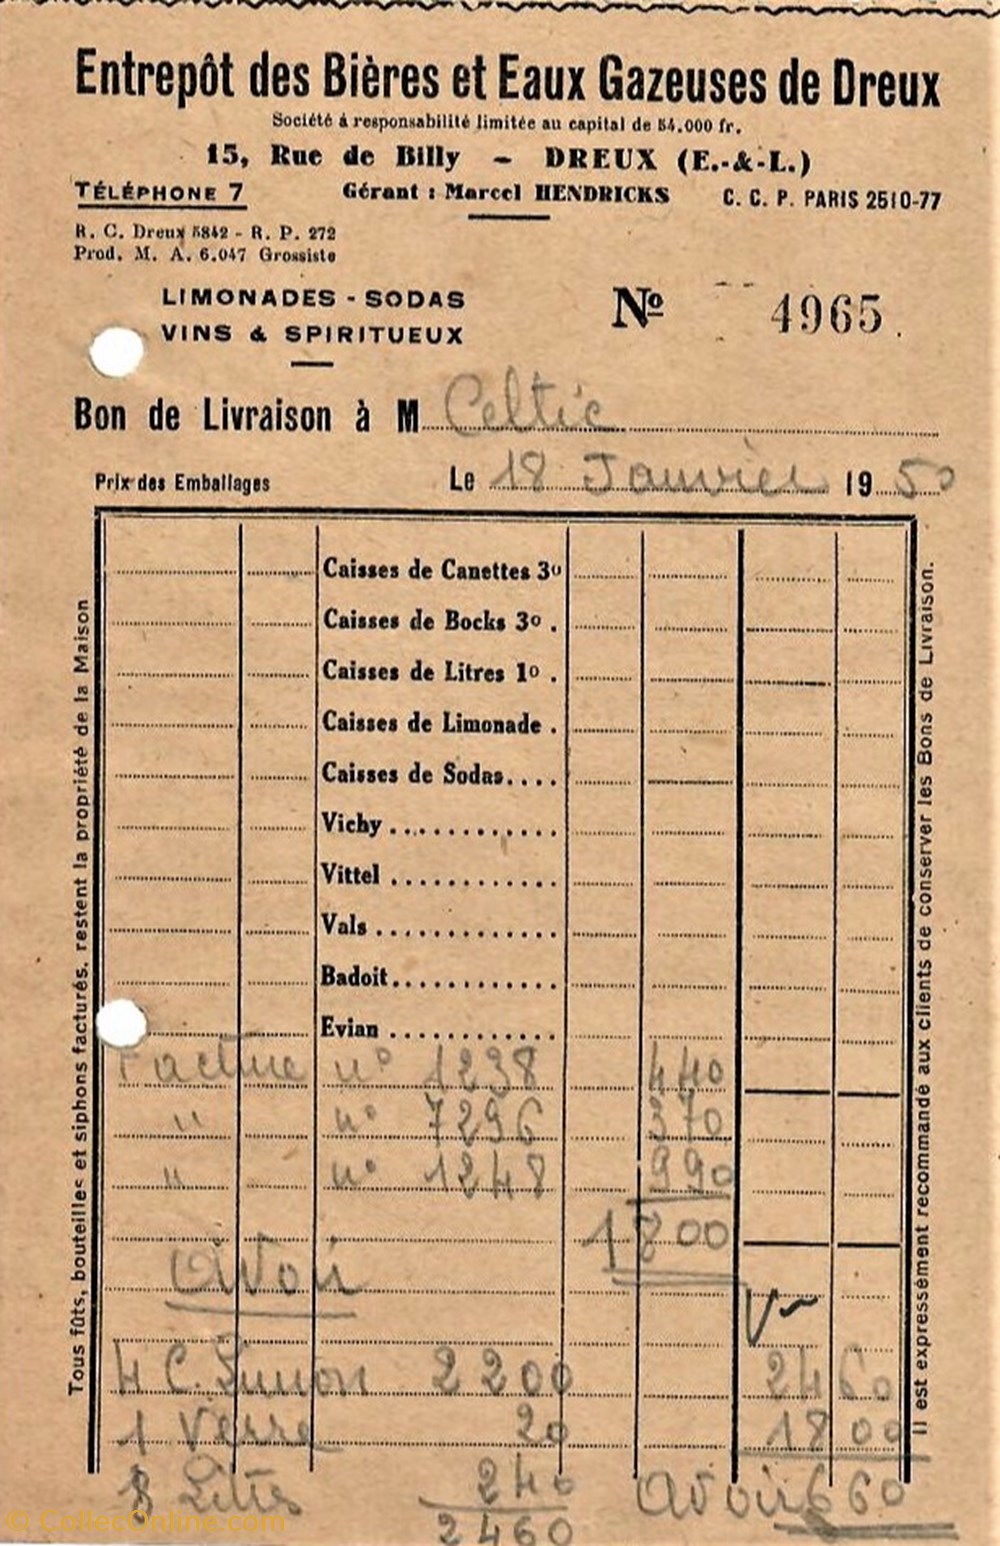 Entrepôt des Bières et Eaux Gazeuses de Dreux
Société à responsabilité limitée au capital de 54.000 fr.
15, Rue de Billy - DREUX (E.-&-L.)
TÉLÉPHONE 7 Gérant : Marcel HENDRICKS C. C. P. PARIS 2510-77
R. C. Dreux 5842 - R. P. 272
Prod. M. A. 6.047 Grossiste
LIMONADES - SODAS
VINS & SPIRITUEUX
Nº 4965
Bon de Livraison à M Celtic
Prix des Emballages Le 18 Janvier 1950
Caisses de Canettes 3º
Caisses de Bocks 3º .
Caisses de Litres 1º .
Caisses de Limonade .
Caisses de Sodas....
Vichy ...........
Vittel ...........
Vals ............
Badoit...........
Evian ...........
Facture nº 1238 440
" nº 7296 370
" nº 1248 990
1800
Avoir
4 C. 2200 2460
1 Verre 20 1800
8 Litres 240 Avoir 660
2460
Tous fûts, bouteilles et siphons facturés, restent la propriété de la Maison
Il est expressément recommandé aux clients de conserver les Bons de Livraison.
© CollecOnline.com